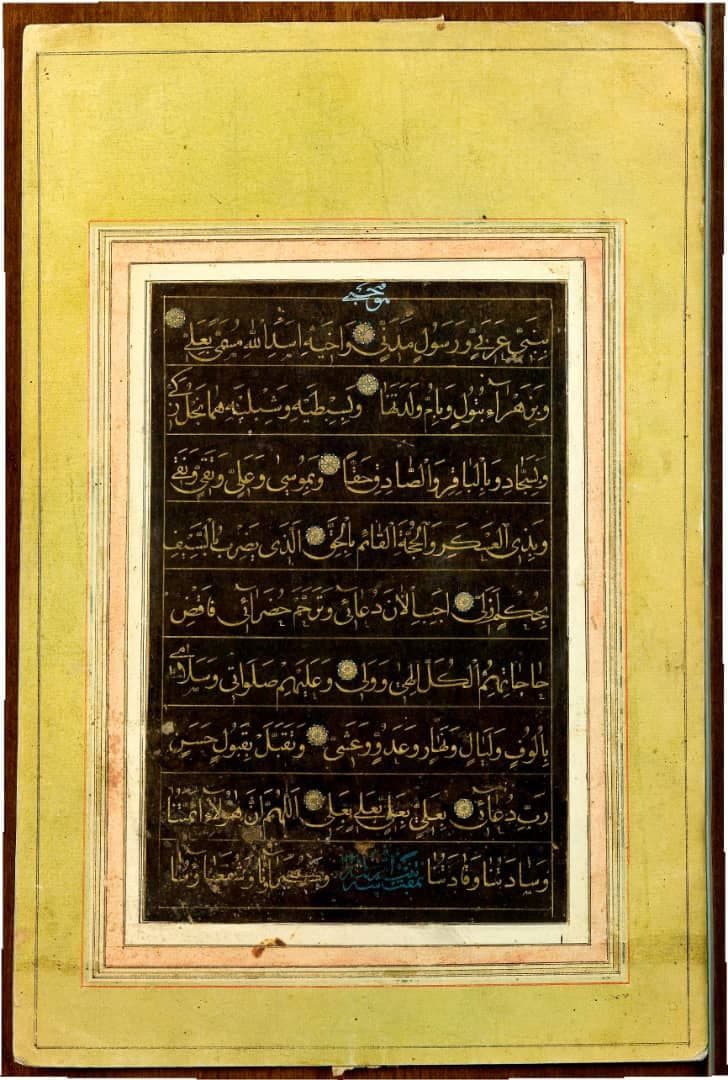 بِنَبِيٍّ عَرَبِيٍّ وَرَسُولٍ مَدَنِيٍّ وَاَخِيهِ اَسَدِ اللهِ مُسَمًّى بِعَلِيٍّ
وَبِزَهْرَآءَ بَتُولٍ وَبِاُمٍّ وَلَدَتْهَا وَبِسِبْطَيْهِ وَشِبْلَيْهِ هُمَا نَجْلُ زَكِيٍّ
وَبِسَجَّادٍ وَبِالْبَاقِرِ وَالصَّادِقِ حَقًّا وَبِمُوسٰى وَعَلِيٍّ وَتَقِيٍّ وَنَقِيٍّ
وَبِذِى الْعَسْكَرِ وَالْحُجَّةِ الْقَائِمِ بِالْحَقِّ الَّذِى يَضْرِبُ بِالسَّيْفِ
بِحُكْمٍ اَزَلِيٍّ اَجِبِ الْاٰنَ دُعَائِى وَتَرَحَّمْ حُضَرَائِى فَاقْضِ
حَاجَاتِهُمُ الْكُلَّ اِلٰهِى وَوَلِى وَعَلَيْهِمْ صَلَوَاتِى وَسَلَامِى
بِاُلُوفٍ وَلَيَالٍ وَنَهَارٍ وَغُدُوٍّ وَعَشِيٍّ وَتَقَبَّلْ بِقَبُولٍ حَسَنٍ
رَبِّ دُعَائِى بِعَلِيٍّ بِعَلِيٍّ بِعَلِيٍّ بِعَلِيٍّ اَللّٰهُمَّ اِنَّ هٰؤُلَآءِ اَئِمَّتُنَا
وَسَادَتُنَا وَقَادَتُنَا